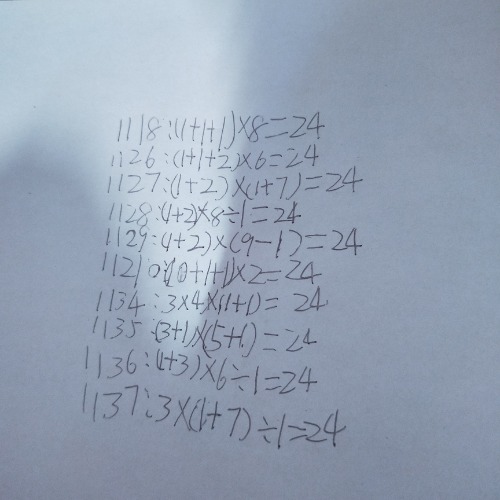 1118:(1+1+1)×8=24
1126:(1+1+2)×6=24
1127:(1+2)×(1+7)=24
1128:(1+2)×8÷1=24
1129:(1+2)×(9-1)=24
11210:(10+1+1)×2=24
1134:3×4×(1+1)=24
1135:(3+1)×(5+1)=24
1136:(1+3)×6÷1=24
1137:3×(1+7)÷1=24